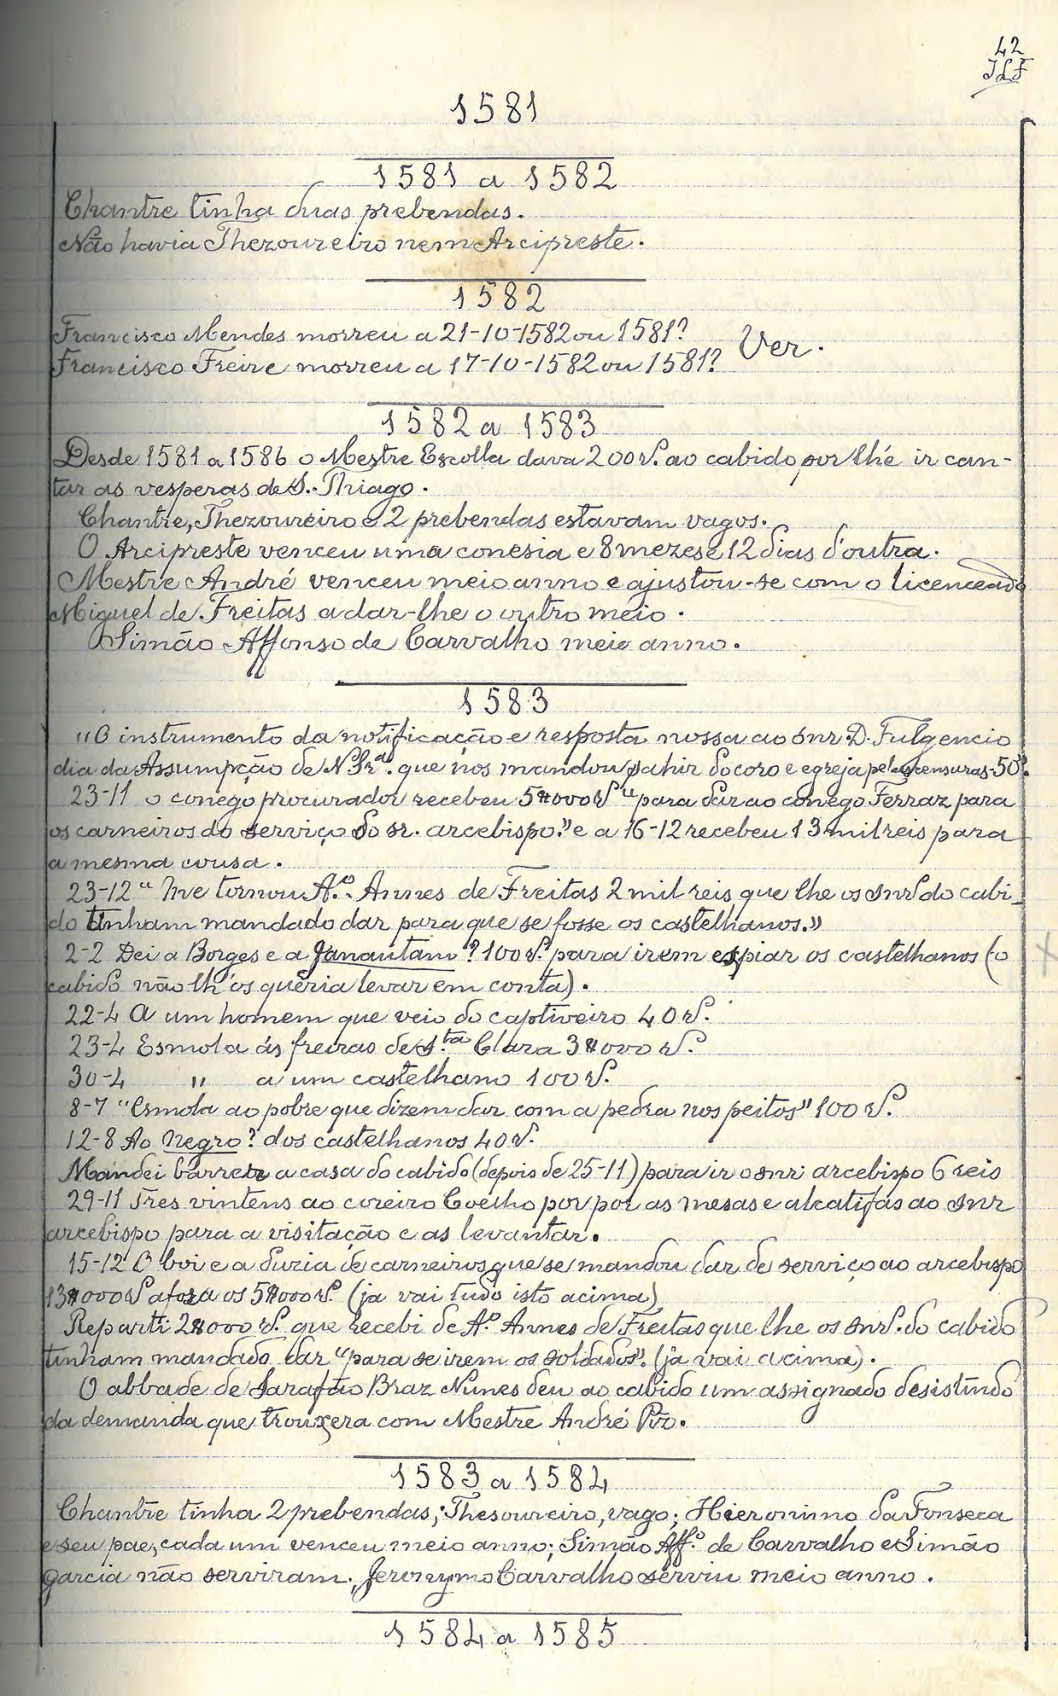 42
JLF
1581
1581 a 1582
Chantre tinha duas prebendas.
Não havia Thezoureiro nem Arcipreste.
1582
Francisco Mendes morreu a 21-10-1582 ou 1581?
Ver.
Francisco Freire morreu a 17-10-1582 ou 1581?
1582 a 1583
Desde 1581 a 1586 o Mestre Escolla dava 200 rs. ao cabido por lhé ir can-
tar as vesperas de S. Thiago.
Chantre, Thezoureiro e 2 prebendas estavam vagos.
O Arcipreste venceu uma conesia e 8 mezes e 12 dias d'outra.
Mestre André venceu meio anno e ajustou-se com o licenceado
Miguel de Freitas a dar-lhe o outro meio.
Simão Affonso de Carvalho meio anno.
1583
"O instrumento da notificação e resposta nossa ao Snr D. Fulgencio
dia da Assumpção de N. Srª. que nos mandou sahir do coro e egreja pelas censuras-50rs.
23-11 o conego procurador recebeu 5$000 rs "para dar ao conego Ferraz para
os carneiros do serviço do sr. arcebispo." e a 16-12 recebeu 13 mil reis para
a mesma cousa.
23-12 "Me tornou Aº. Annes de Freitas 2 mil reis que lhe os Snrs do cabi-
do tinham mandado dar para que se fosse os castelhanos."
2-2 Dei a Borges e a Janautam? 100 rs. para irem espiar os castelhanos (o
cabido não lh'os queria levar em conta).
22-4 A um homem que veio do captiveiro 40 rs.
23-4 Esmola ás freiras de S.ta Clara 3$000 rs.
30-4 " a um castelhano 100 rs.
8-7 "Esmola ao pobre que dizem dar com a pedra nos peitos" 100 rs.
12-8 Ao Negro? dos castelhanos 40 rs.
Mandei barrer a casa do cabido (depois de 25-11) para ir o snr. arcebispo 6 reis
29-11 Tres vintens ao coreiro Coelho por por as mesas e alcatifas ao Snr
arcebispo para a visitação e as levantar.
15-12 O boi e a duzia de carneiros que se mandou dar de serviço ao arcebispo
13$000 rs afora os 5$000 rs. (ja vai tudo isto acima)
Reparti 2$000 rs. que recebi de Aº Annes de Freitas que lhe os Snrs. do cabido
tinham mandado dar "para se irem os soldados". (ja vai acima).
O abbade de Sarafão Braz Nunes deu ao cabido um assignado desistindo
da demanda que trouxera com Mestre André Piz.
1583 a 1584
Chantre tinha 2 prebendas; Thesoureiro, vago; Hieronimo da Fonseca
e seu pae, cada um venceu meio anno; Simão Aff.º de Carvalho e Simão
Garcia não serviram. Jeronymo Carvalho serviu meio anno.
1584 a 1585